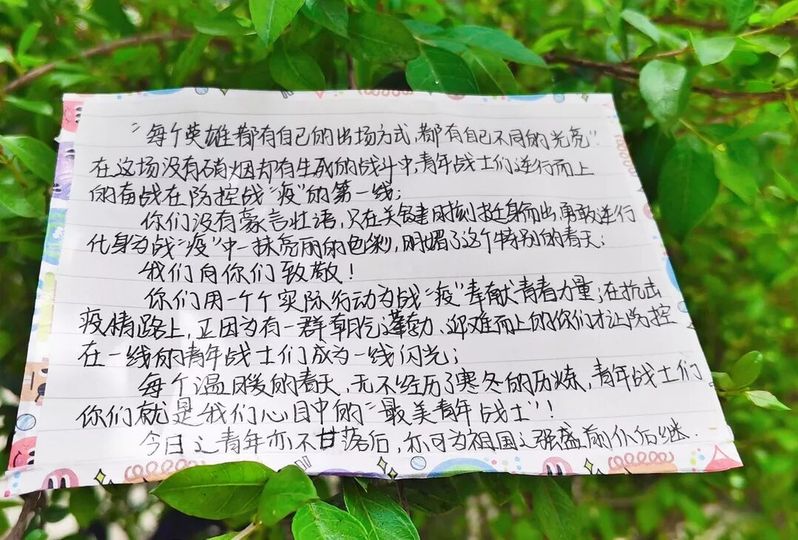 “每个英雄都有自己的出场方式,都有自己不同的光亮”
在这场没有硝烟却有生死的战斗中,青年战士们逆行而上
的奋战在防控战“疫”的第一线;
你们没有豪言壮语,只在关键时刻挺身而出勇敢逆行
化身为战“疫”中一抹亮丽的色彩,明媚了这个特别的春天;
我们向你们致敬!
你们用一个个实际行动为战“疫”奉献青春力量;在抗击
疫情路上,正因为有一群朝气蓬勃、迎难而上的你们才让防控
在一线的青年战士们成为一线闪光;
每个温暖的春天,无不经历了寒冬的历炼,青年战士们
你们就是我们心目中的“最美青年战士”!
今日之青年亦不甘落后,亦可为祖国之强盛前仆后继.